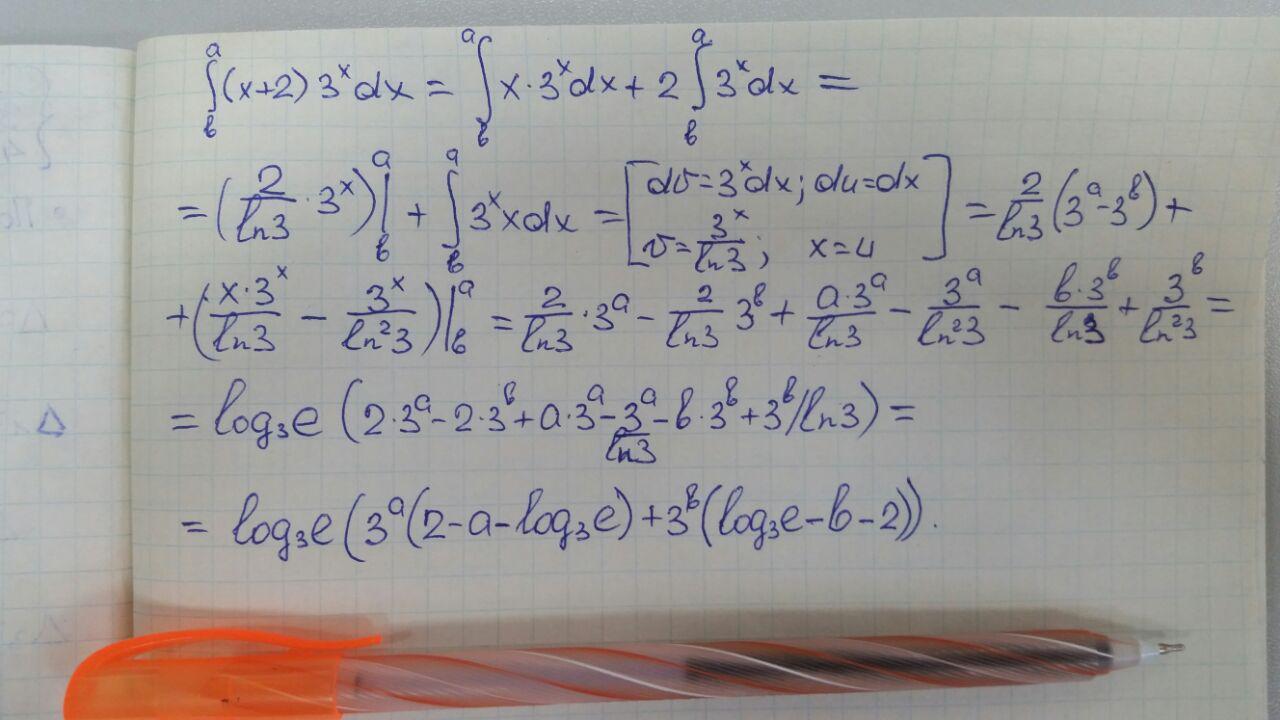 ∫_в^a (x+2) 3^x dx = ∫_в^a x·3^x dx + 2 ∫_в^a 3^x dx =
= (2/ln3 · 3^x)|_в^a + ∫_в^a 3^x x dx = [dv=3^x dx; du=dx v=3^x/ln3; x=u] = 2/ln3 (3^a-3^в) +
+ (x·3^x/ln3 - 3^x/ln²3)|_в^a = 2/ln3 · 3^a - 2/ln3 3^в + a·3^a/ln3 - 3^a/ln²3 - в·3^в/ln3 + 3^в/ln²3 =
= log₃e (2·3^a - 2·3^в + a·3^a - 3^a/ln3 - в·3^в + 3^в/ln3) =
= log₃e (3^a(2-a-log₃e) + 3^в(log₃e-в-2)).